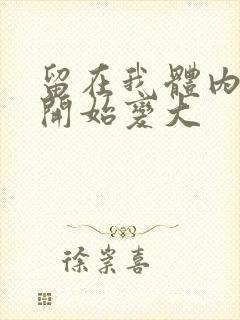 留在我體內
開始變大
徐崇喜